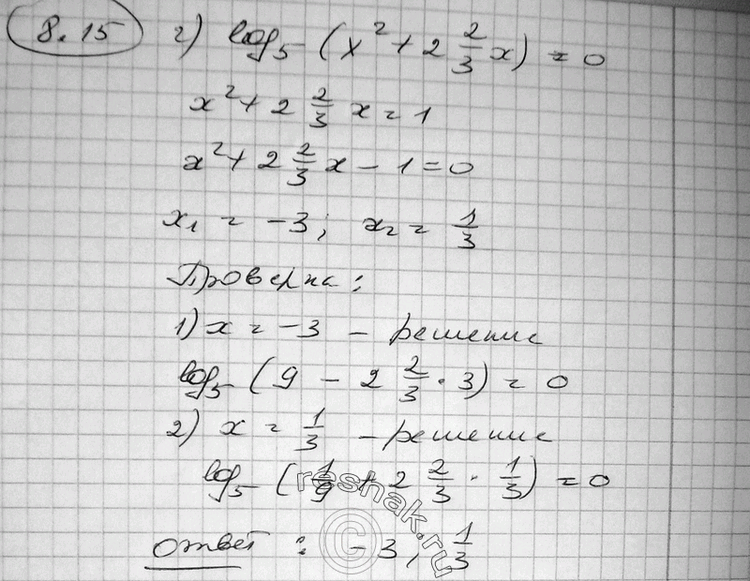 8.15 г) log₅ (x² + 2 2/3 x) = 0
x² + 2 2/3 x = 1
x² + 2 2/3 x - 1 = 0
x₁ = -3; x₂ = 1/3
Проверка:
1) x = -3 - решение
log₅ (9 - 2 2/3 · 3) = 0
2) x = 1/3 - решение
log₅ (1/9 + 2 2/3 · 1/3) = 0
reshak.ru
©
Ответ: -3; 1/3